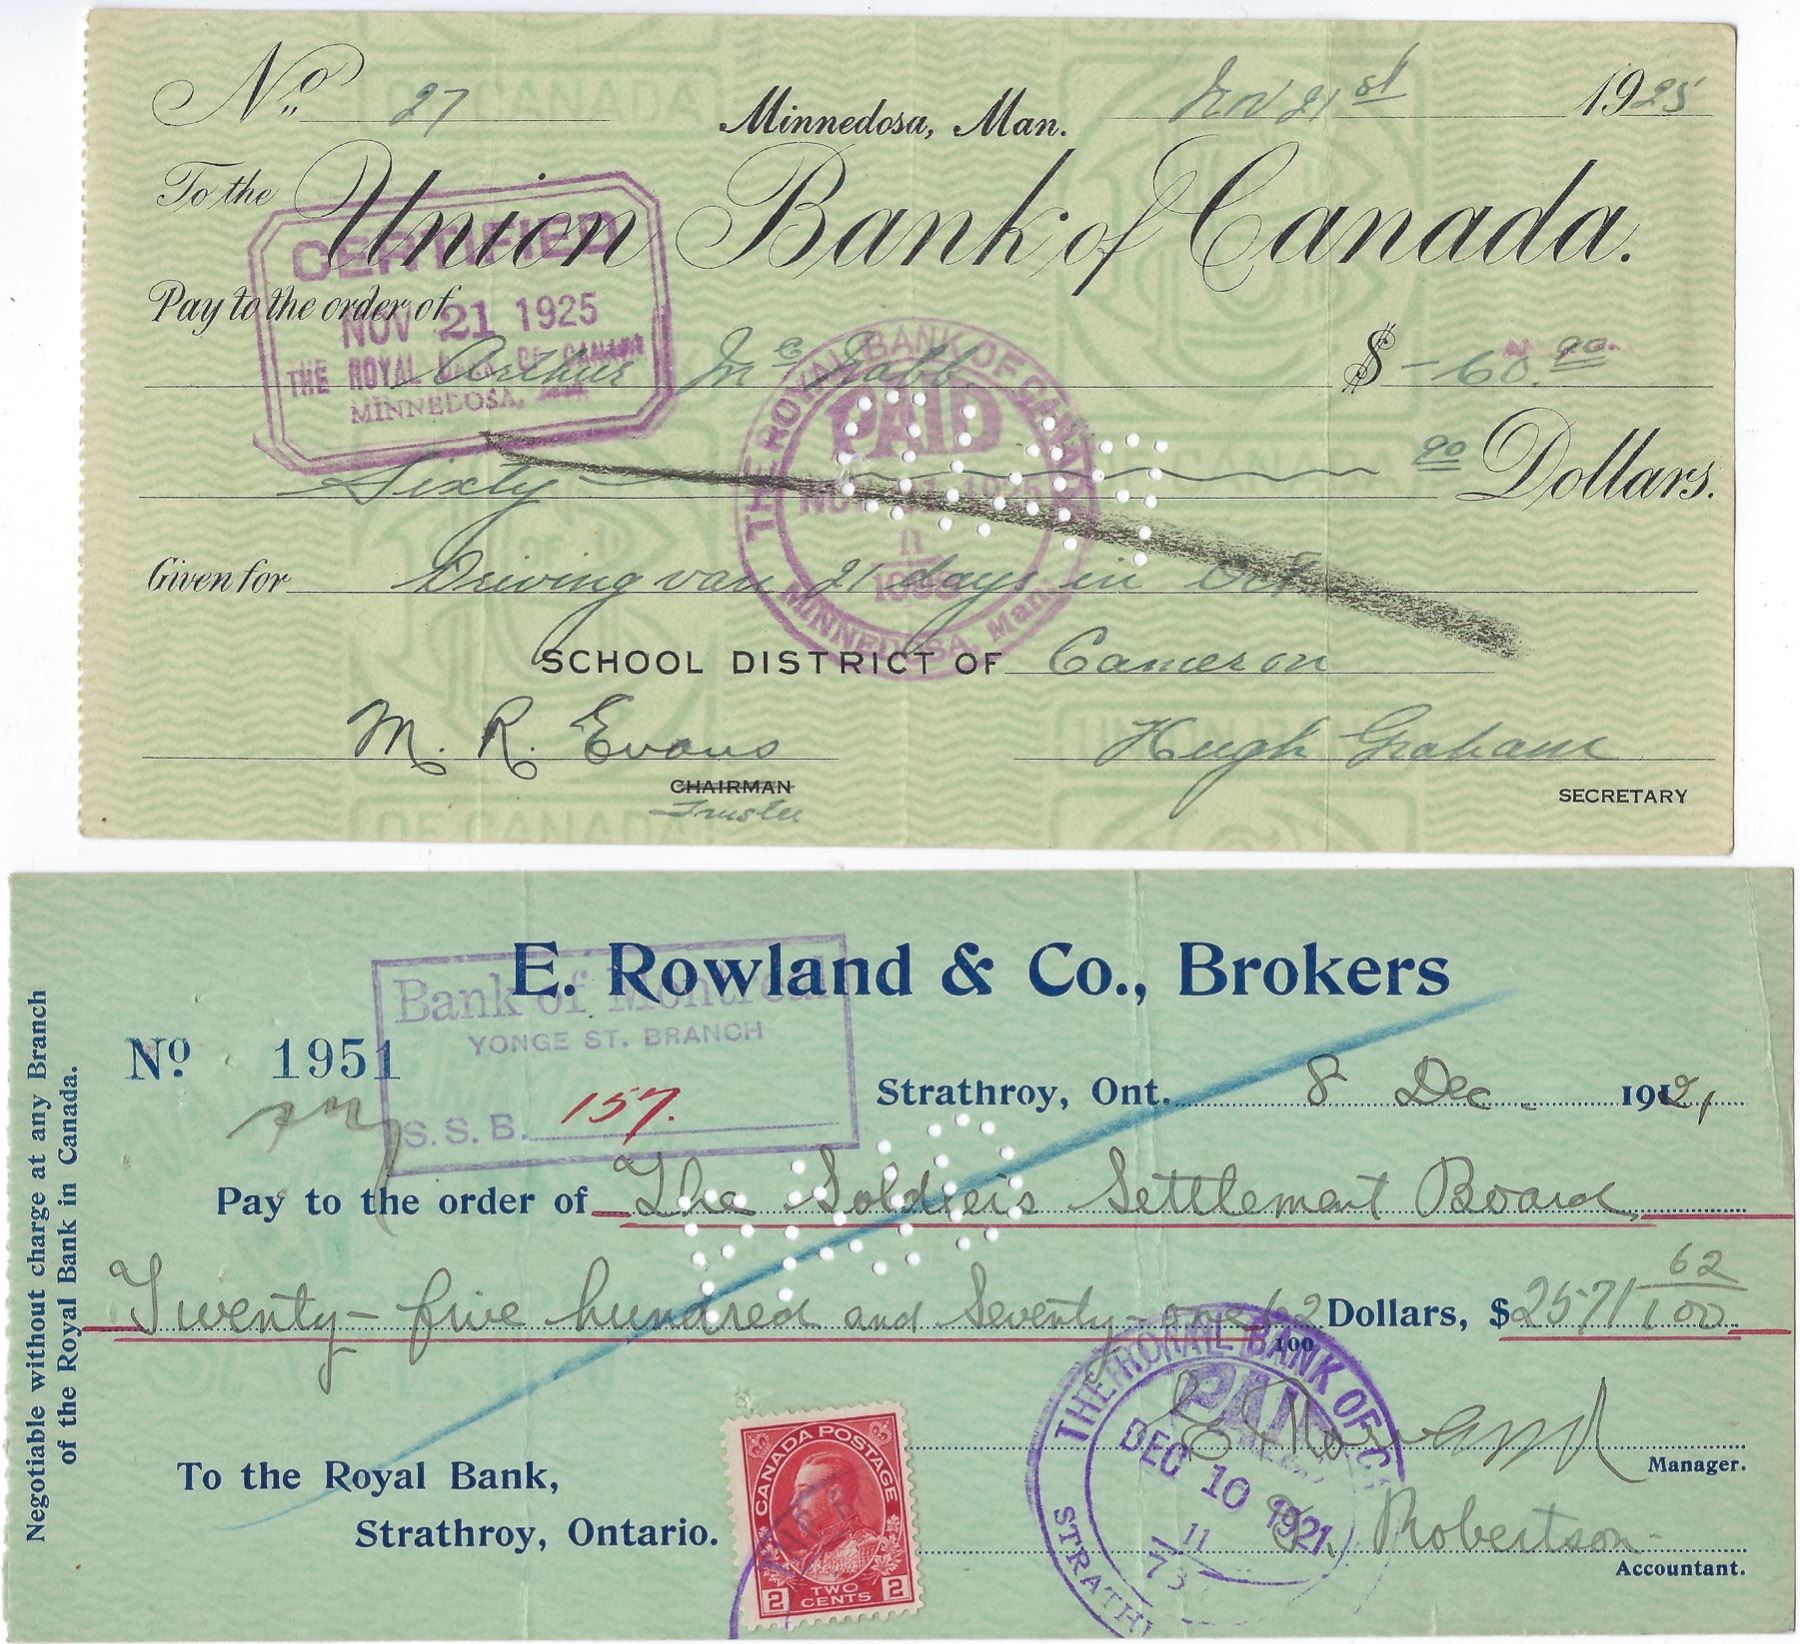 No. 27 Minnedosa, Man. Nov 21st 1925
To the Union Bank of Canada.
CERTIFIED
NOV 21 1925
THE ROYAL BANK OF CANADA
MINNEDOSA,
Pay to the order of
Arthur McNabb $ -60.90
THE ROYAL BANK OF CANADA
PAID
NOV 21 1925
11
MINNEDOSA, Man.
Sixty 90 Dollars.
Given for Driving van 21 days in Oct
SCHOOL DISTRICT OF Cameron
M. R. Evans Hugh Graham
CHAIRMAN SECRETARY
Trustee
OF CANADA
E. Rowland & Co., Brokers
Bank of Montreal
YONGE ST. BRANCH
S. S. B. 157.
No. 1951
Strathroy, Ont. 8 Dec. 1921
Pay to the order of The Soldiers Settlement Board
Twenty-five hundred and Seventy-one 62/100 Dollars, $2571 62/100
THE ROYAL BANK OF C
PAID
DEC 10 1921
11
STRATH
E Rowland
Manager.
To the Royal Bank,
Strathroy, Ontario.
Robertson
Accountant.
CANADA POSTAGE
2 TWO CENTS 2
Negotiable without charge at any Branch
of the Royal Bank in Canada.